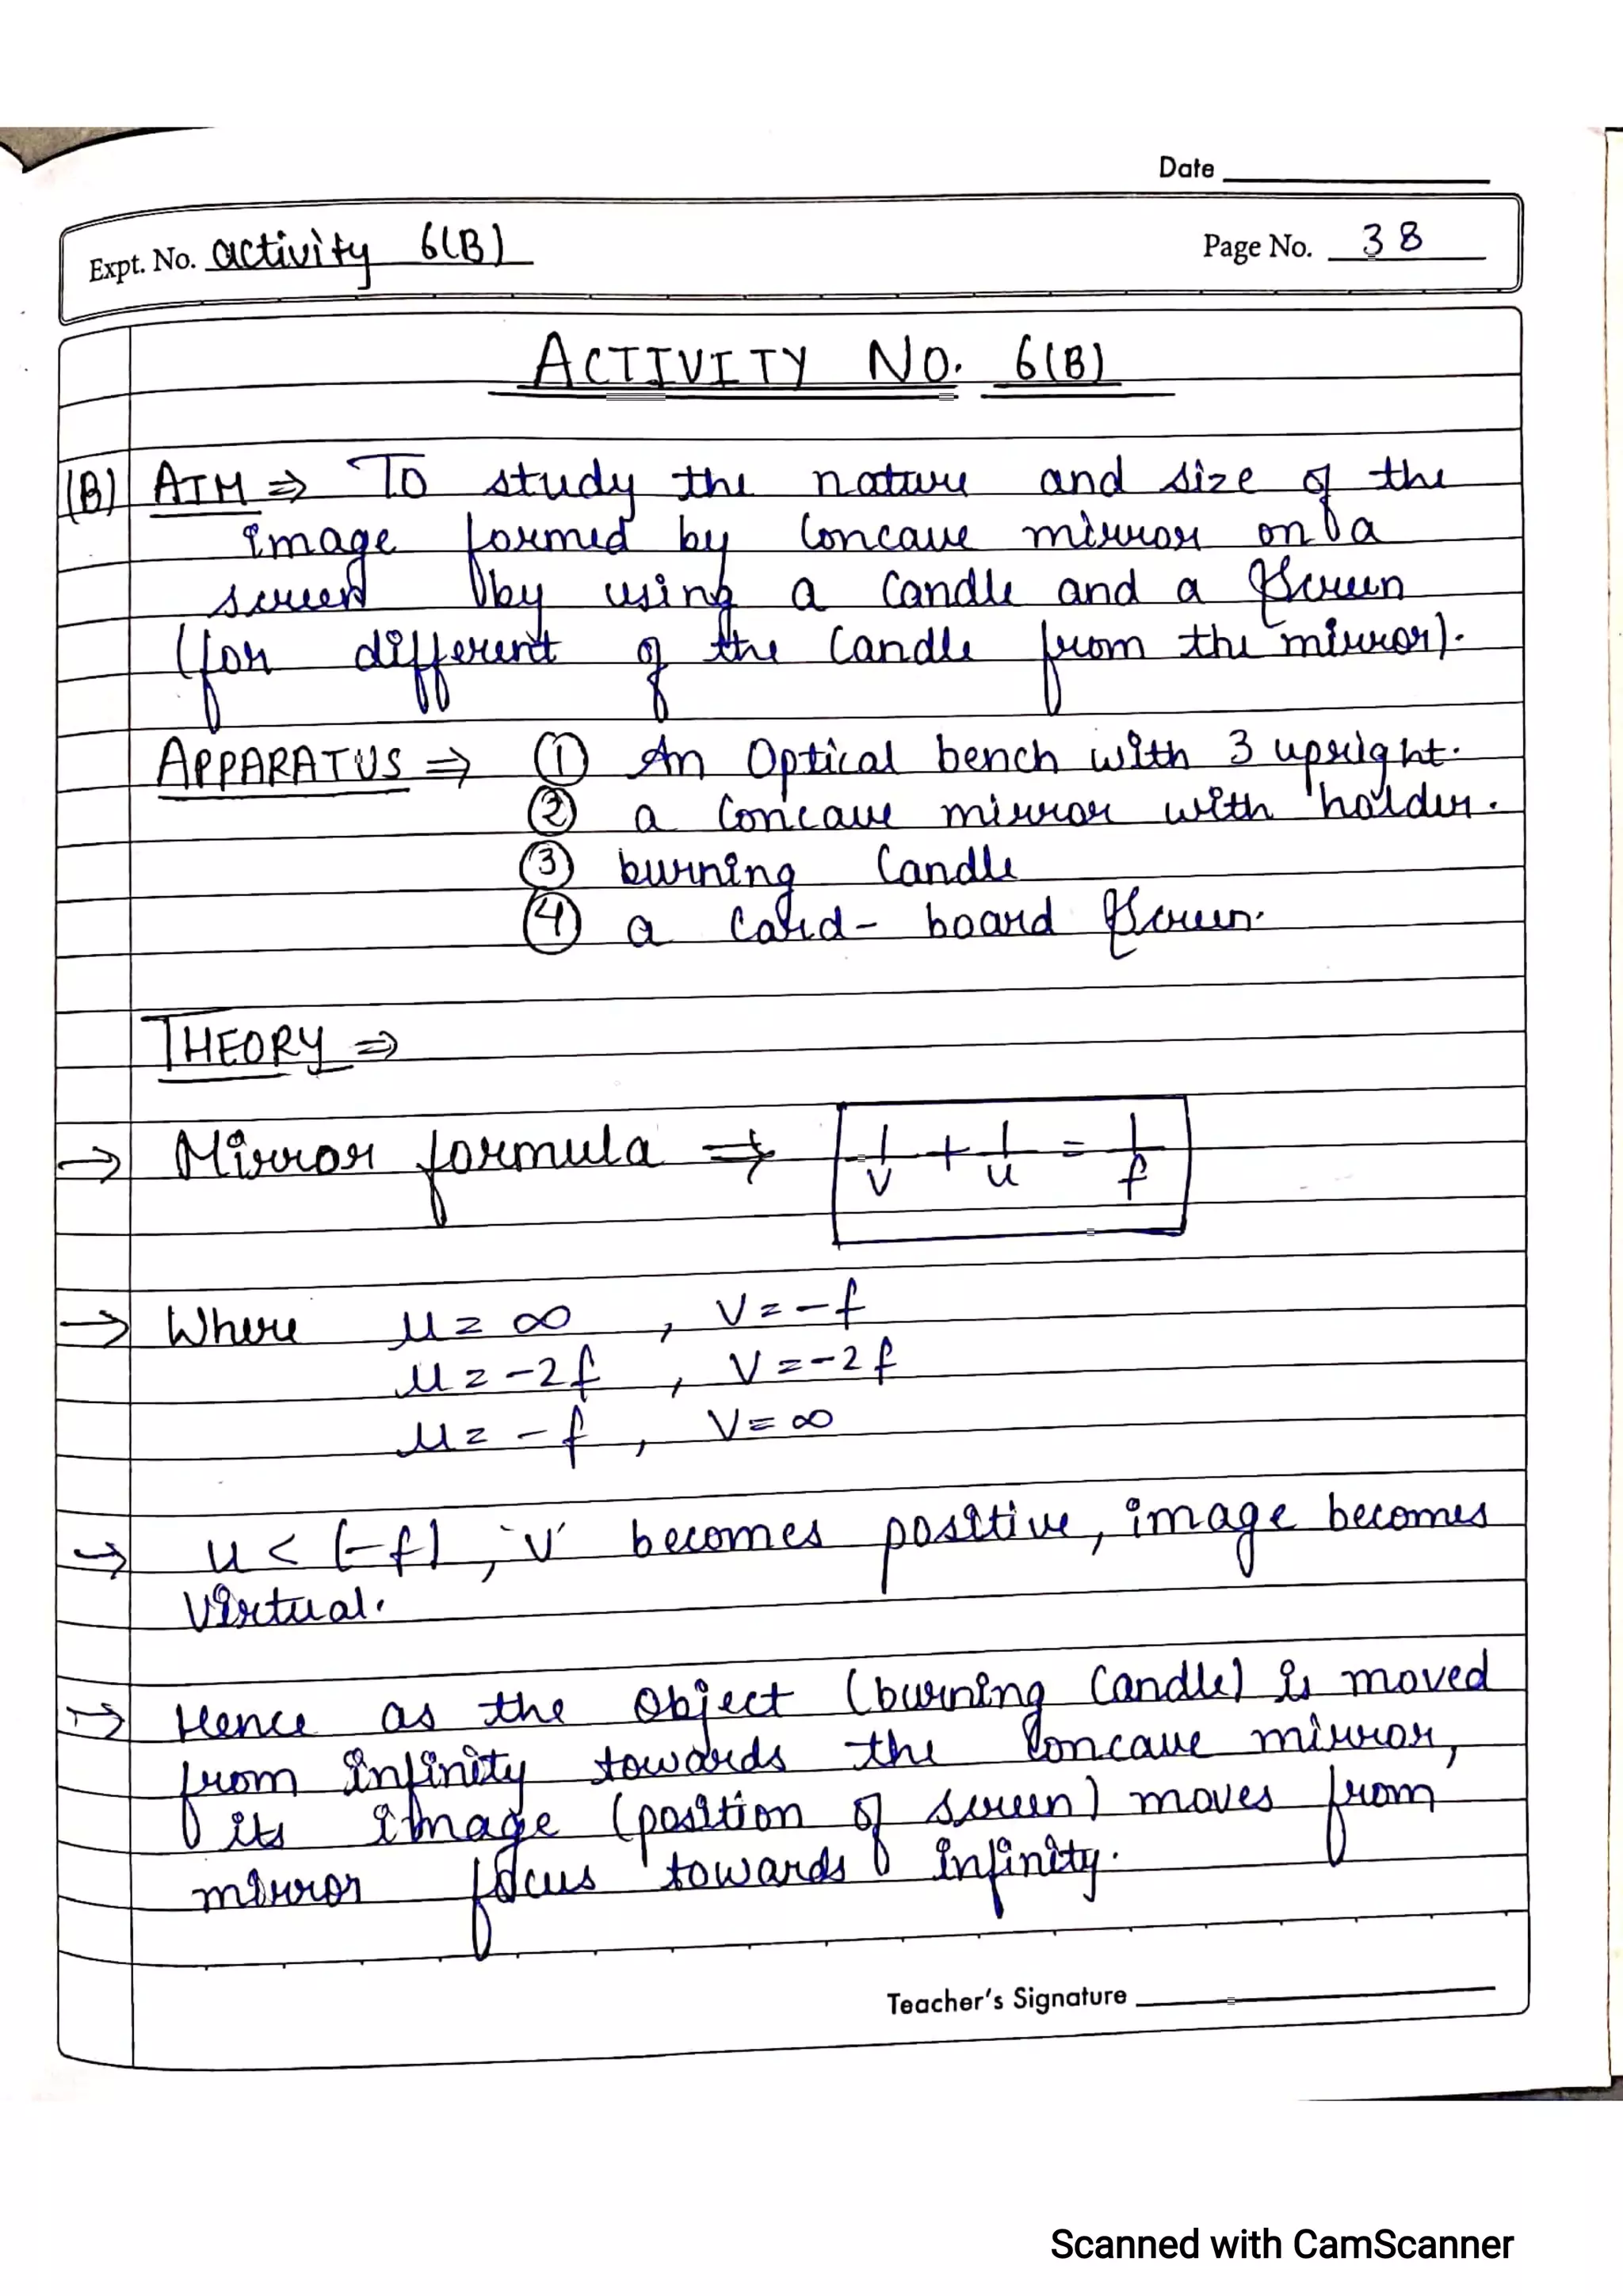 Date
Expt. No. activity 6(B)
Page No. 38
ACTIVITY NO. 6(B)
(B) AIM ⇒ To study the nature and size of the
image formed by Concave mirror on a
screen by using a Candle and a Screen
(for different of the Candle from the mirror).
APPARATUS ⇒ ① An Optical bench with 3 upright.
② a Concave mirror with holder.
③ burning Candle
④ a Card-board Screen.
THEORY ⇒
→ Mirror formula ⇒ 1/v + 1/u = 1/f
→ Where u = ∞ , v = -f
u = -2f , v = -2f
u = -f , v = ∞
→ u < (-f), 'v' becomes positive, image becomes
virtual.
→ Hence as the Object (burning Candle) is moved
from infinity towards the Concave mirror,
its image (position of screen) moves from
mirror focus towards infinity.
Teacher's Signature
Scanned with CamScanner